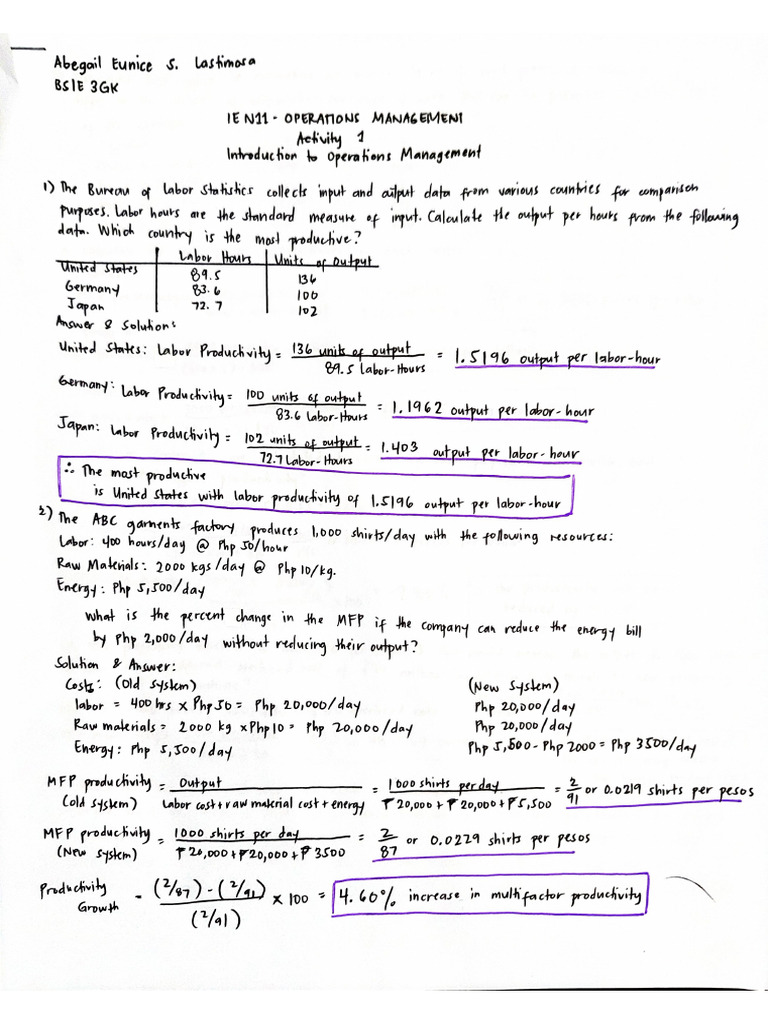 Abegail Eunice S. Lastimosa
BSIE 3GK
IE N11 - OPERATIONS MANAGEMENT
Activity 1
Introduction to Operations Management
1) The Bureau of Labor Statistics collects input and output data from various countries for comparison
purposes. Labor hours are the standard measure of input. Calculate the output per hours from the following
data. Which country is the most productive?
Labor Hours Units of Output
United States 89.5 136
Germany 83.6 100
Japan 72.7 102
Answer & Solution:
United States: Labor Productivity = 136 units of output / 89.5 Labor-Hours = 1.5196 output per labor-hour
Germany: Labor Productivity = 100 units of output / 83.6 Labor-Hours = 1.1962 output per labor-hour
Japan: Labor Productivity = 102 units of output / 72.7 Labor-Hours = 1.403 output per labor-hour
∴ The most productive
is United States with labor productivity of 1.5196 output per labor-hour
2) The ABC garments factory produces 1,000 shirts/day with the following resources:
Labor: 400 hours/day @ Php 50/hour
Raw Materials: 2000 kgs/day @ Php 10/kg.
Energy: Php 5,500/day
What is the percent change in the MFP if the company can reduce the energy bill
by Php 2,000/day without reducing their output?
Solution & Answer:
Costs: (Old System) (New System)
labor = 400 hrs x Php 50 = Php 20,000/day Php 20,000/day
Raw materials = 2000 kg x Php 10 = Php 20,000/day Php 20,000/day
Energy: Php 5,500/day Php 5,500 - Php 2000 = Php 3500/day
MFP productivity (old system) = Output / Labor cost + raw material cost + energy = 1000 shirts per day / ₱20,000 + ₱20,000 + ₱5,500 = 2/91 or 0.0219 shirts per pesos
MFP productivity (New system) = 1000 shirts per day / ₱20,000 + ₱20,000 + ₱3500 = 2/87 or 0.0229 shirts per pesos
Productivity Growth = (2/87) - (2/91) / (2/91) x 100 = 4.60% increase in multifactor productivity